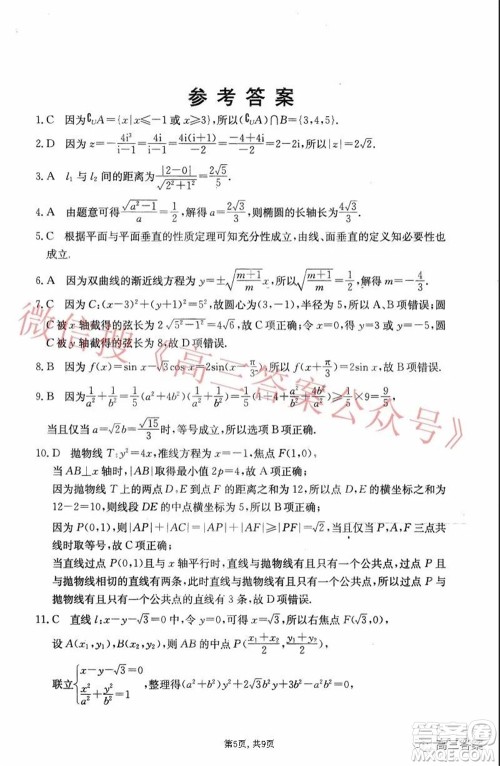 参考答案
1. C 因为∁UA={x|x≤-1或x≥3},所以(∁UA)∩B={3,4,5}.
2. D 因为z=-4i³/(i-1)=4i/(i-1)=4i(i+1)/-2=(-4+4i)/-2=2-2i,所以|z|=2√2.
3. A l₁与l₂间的距离为|2-0|/√(2²+1²)=2√5/5.
4. A 由题意可得√(a²-1)/a=1/2,解得a=2√3/3,则椭圆的长轴长为4√3/3.
5. C 根据平面与平面垂直的性质定理可知充分性成立,由线、面垂直的定义知必要性也
成立.
6. A 因为双曲线的渐近线方程为y=±√((m+1)/m)x,所以√((m+1)/m)=1/2,解得m=-4/3.
7. C 因为C:(x-3)²+(y+1)²=5²,故圆心为(3,-1),半径为5,所以A、B项错误;圆
C被x轴截得的弦长为2√(5²-1²)=4√6,故C项正确;圆C被y轴截得的弦长为
2√(5²-3²)=8,故D项错误.
8. B 因为f(x)=sin x-√3cos x=2sin(x-π/3),所以f(x-π/3)=2sin
9. B 因为1/a²+1/b²=1/5(a²+4b²)(1/a²+1/b²)=1/5(1+4+4b²/a²+a²/b²)≥1/5×9=9/5,
当且仅当a=√2b=√15/3时,等号成立,所以选项B正确.
10. D 抛物线T:y²=4x,准线方程为x=-1,焦点F(1,0).
当AB⊥x轴时,|AB|取得最小值2p=4,故A项正确;
因为抛物线T上的两点D、E到焦点F的距离之和为12,所以x_D+x_E=
12-2=10,则线段DE的中点到y轴的距离为5,故B项正确;
因为P(0,1),所以|AP|+|AC|=|AP|+|AF|≥|PF|=√2,当且仅当P,A,F三点共
线时取等号,故C项正确;
当直线过点P(0,1)且与x轴平行时,直线与抛物线有且只有一个公共点,过点P且
与抛物线相切的直线有两条,此时直线与抛物线有且只有一个公共点,所以过点P与
抛物线有且只有一个公共点的直线有3条,故D项错误.
11. C 直线l:x-y-√3=0,令y=0,则x=√3,所以右焦点F(√3,0),
设A(x₁,y₁),B(x₂,y₂),则AB的中点P((x₁+x₂)/2,(y₁+y₂)/2),
联立{x-y-√3=0, x²/a²+y²/b²=1,整理得(a²+b²)y²+2√3b²y+3b²-a²b²=0,
第5页,共9页
微信搜《高三答案公众号》
高三答案